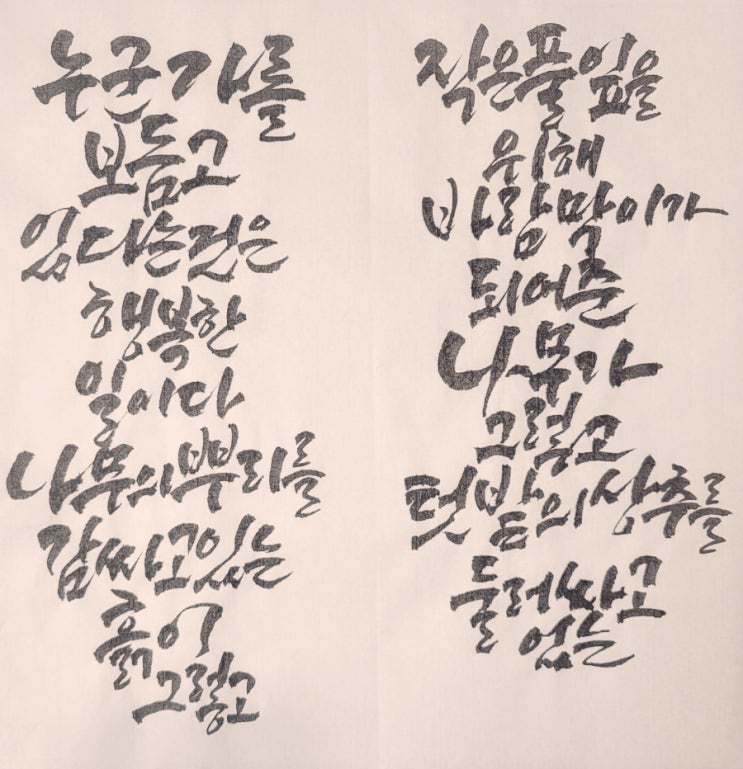 누군가를
보듬고
있다는것은
행복한
일이다
나무의뿌리를
감싸고있는
흙이
그렇고
작은풀잎을
위해
바람막이가
되어준
나무가
그렇고
텃밭의상추를
둘러싸고
있는